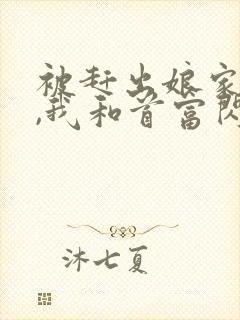 被赶出娘家
,我和首富闪
沐七夏